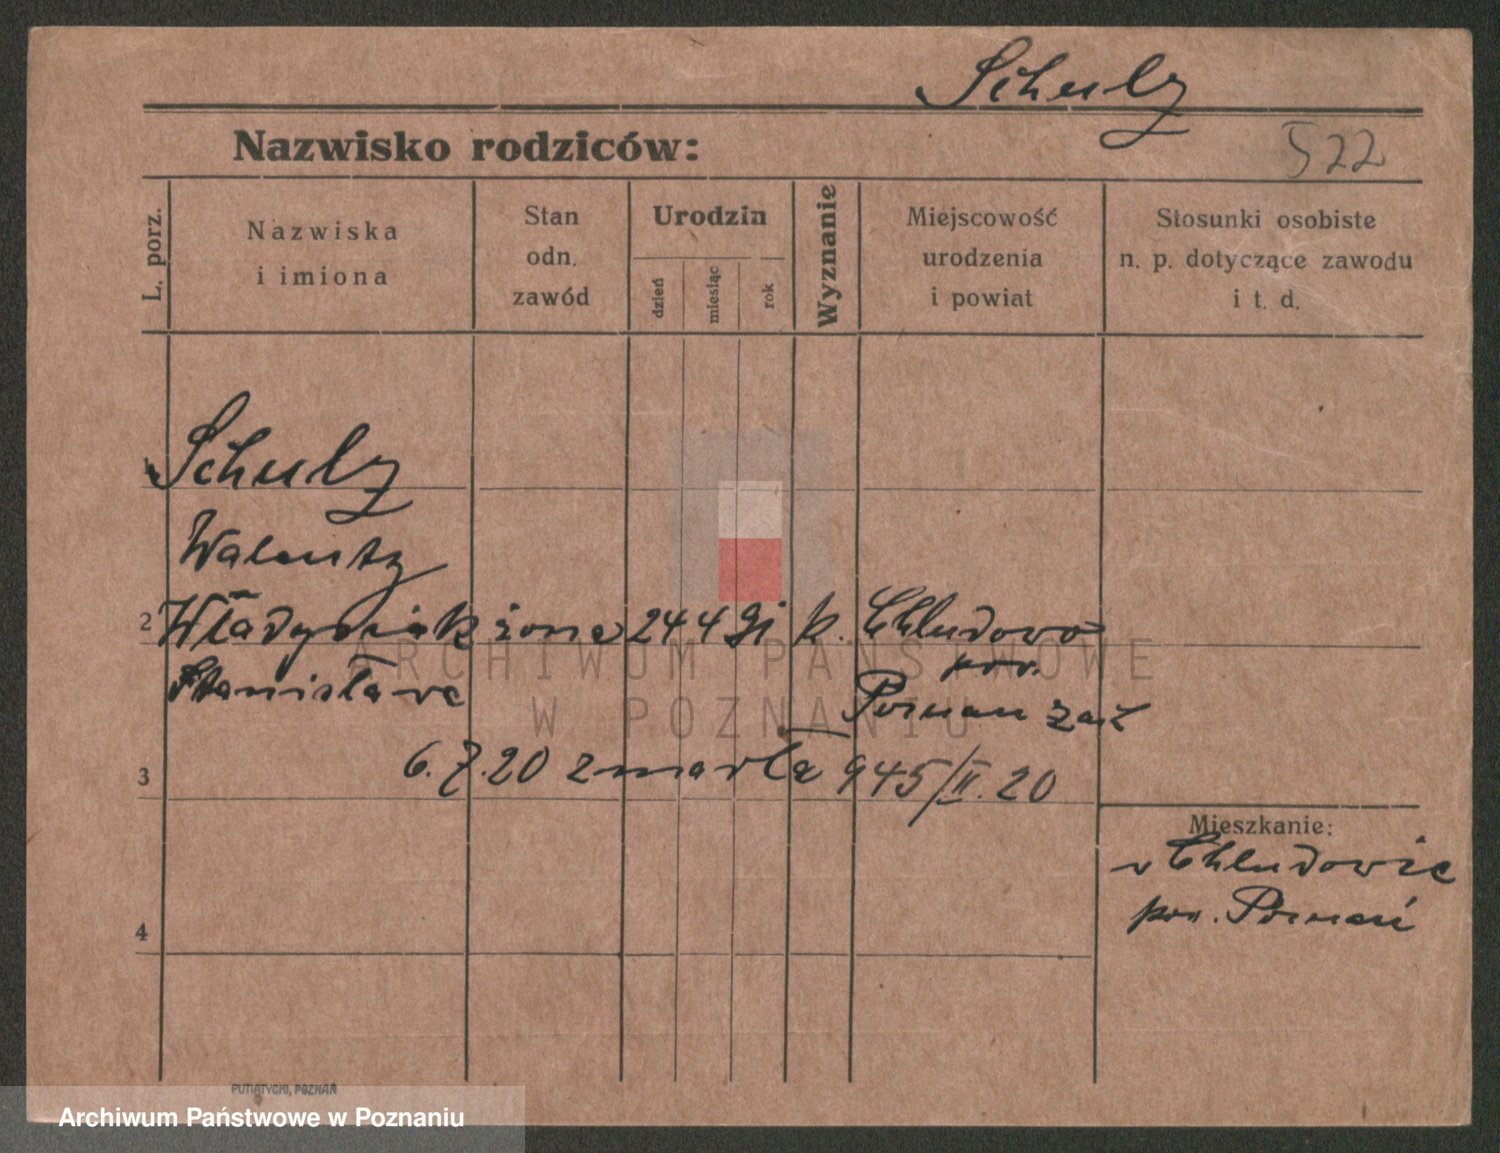 Schulz
Nazwisko rodziców:
522
L. porz.
Nazwiska
i imiona
Stan
odn.
zawód
Urodzin
dzień
miesiąc
rok
Wyznanie
Miejscowość
urodzenia
i powiat
Stosunki osobiste
n. p. dotyczące zawodu
i t. d.
Schulz
Walenty
2 Władysiak żona 24 4 91 k. Chludowo
pow.
Stanisława Poznan zach
3 6.7.20 zmarła 945/II.20
Mieszkanie:
w Chludowie
pow. Poznań
4
ARCHIWUM PAŃSTWOWE
W POZNANIU
PUTIATYCKI, POZNAŃ
Archiwum Państwowe w Poznaniu